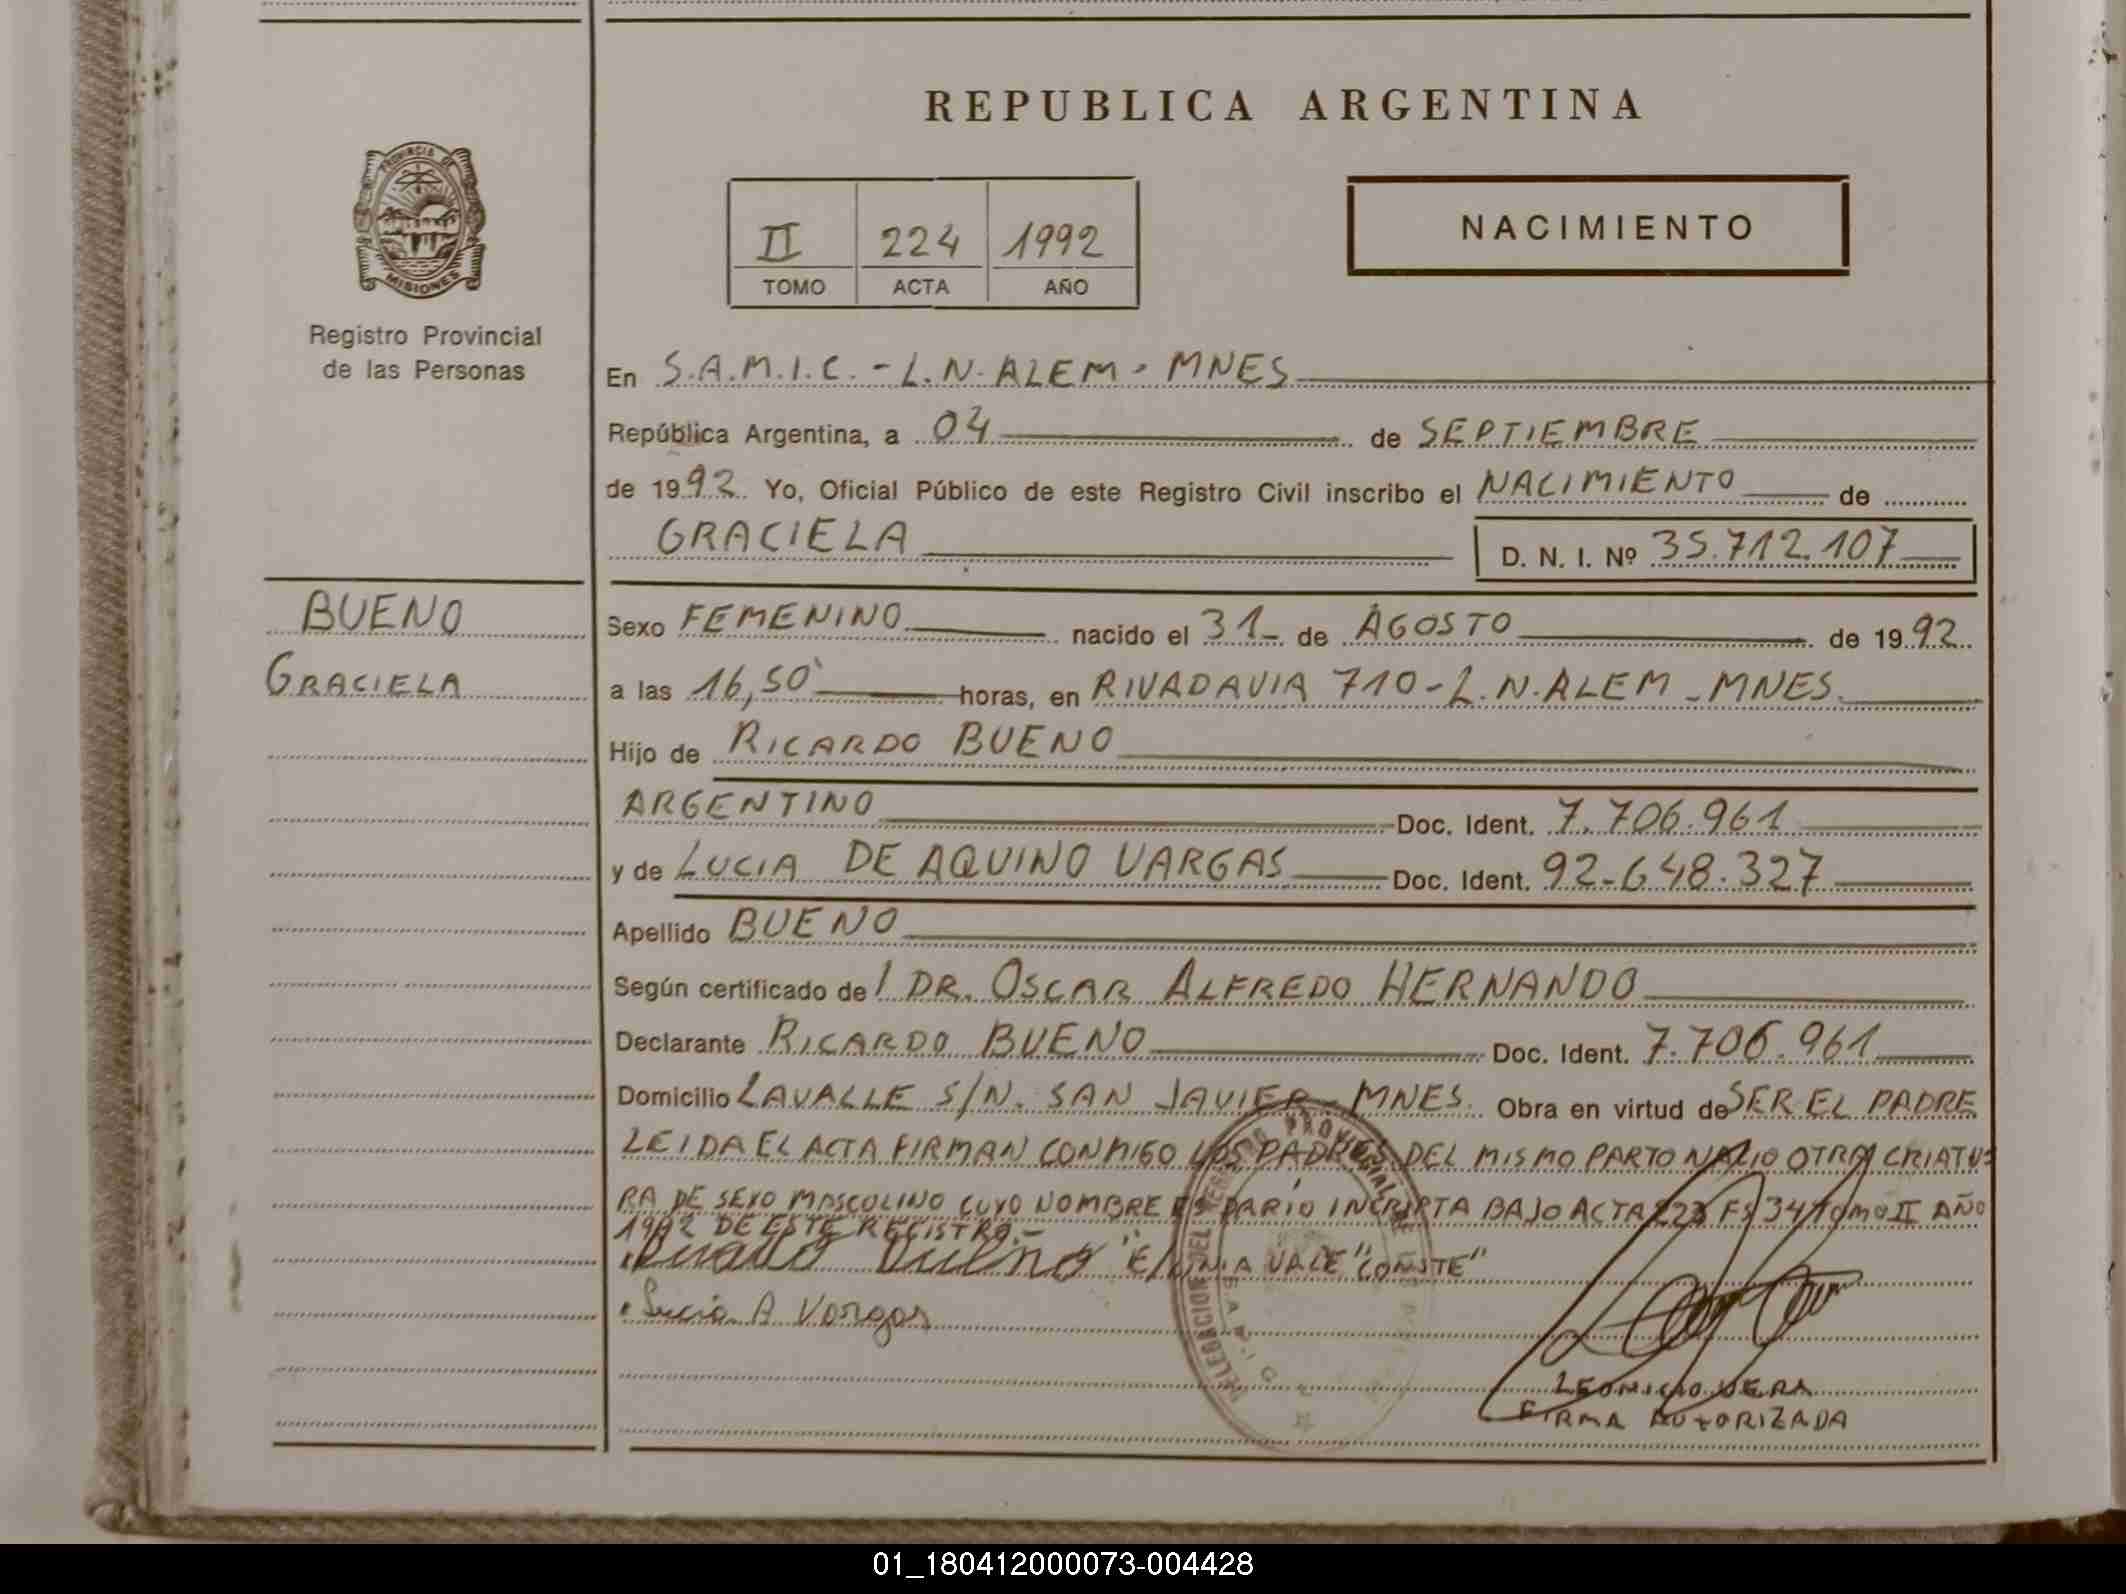 REPUBLICA ARGENTINA
PROVINCIA DE
MISIONES
Registro Provincial
de las Personas
II 224 1992
TOMO ACTA AÑO
NACIMIENTO
En S.A.M.I.C. - L.N. ALEM - MNES
República Argentina, a 04 de SEPTIEMBRE
de 1992 Yo, Oficial Público de este Registro Civil inscribo el NACIMIENTO de
GRACIELA D. N. I. Nº 35.712.107
BUENO
GRACIELA
Sexo FEMENINO nacido el 31 de AGOSTO de 1992
a las 16,50 horas, en RIVADAVIA 710 - L.N. ALEM - MNES.
Hijo de RICARDO BUENO
ARGENTINO Doc. Ident. 7.706.961
y de LUCIA DE AQUINO VARGAS Doc. Ident. 92-648.327
Apellido BUENO
Según certificado del DR. OSCAR ALFREDO HERNANDO
Declarante RICARDO BUENO Doc. Ident. 7.706.961
Domicilio LAVALLE S/N. SAN JAVIER - MNES. Obra en virtud de SER EL PADRE
LEIDA EL ACTA FIRMAN CONMIGO LOS PADRES DEL MISMO PARTO NACIO OTRA CRIATU
RA DE SEXO MASCOLINO CUYO NOMBRE ES DARIO INCRIPTA BAJO ACTA 223 Fº 34 TOMO II AÑO
1992 DE ESTE REGISTRO.-
Ricardo Bueno "E/LINIA VALE "CONSTE"
Lucia A Vargas
LEONICIO VERA
FIRMA AUTORIZADA
01_180412000073-004428